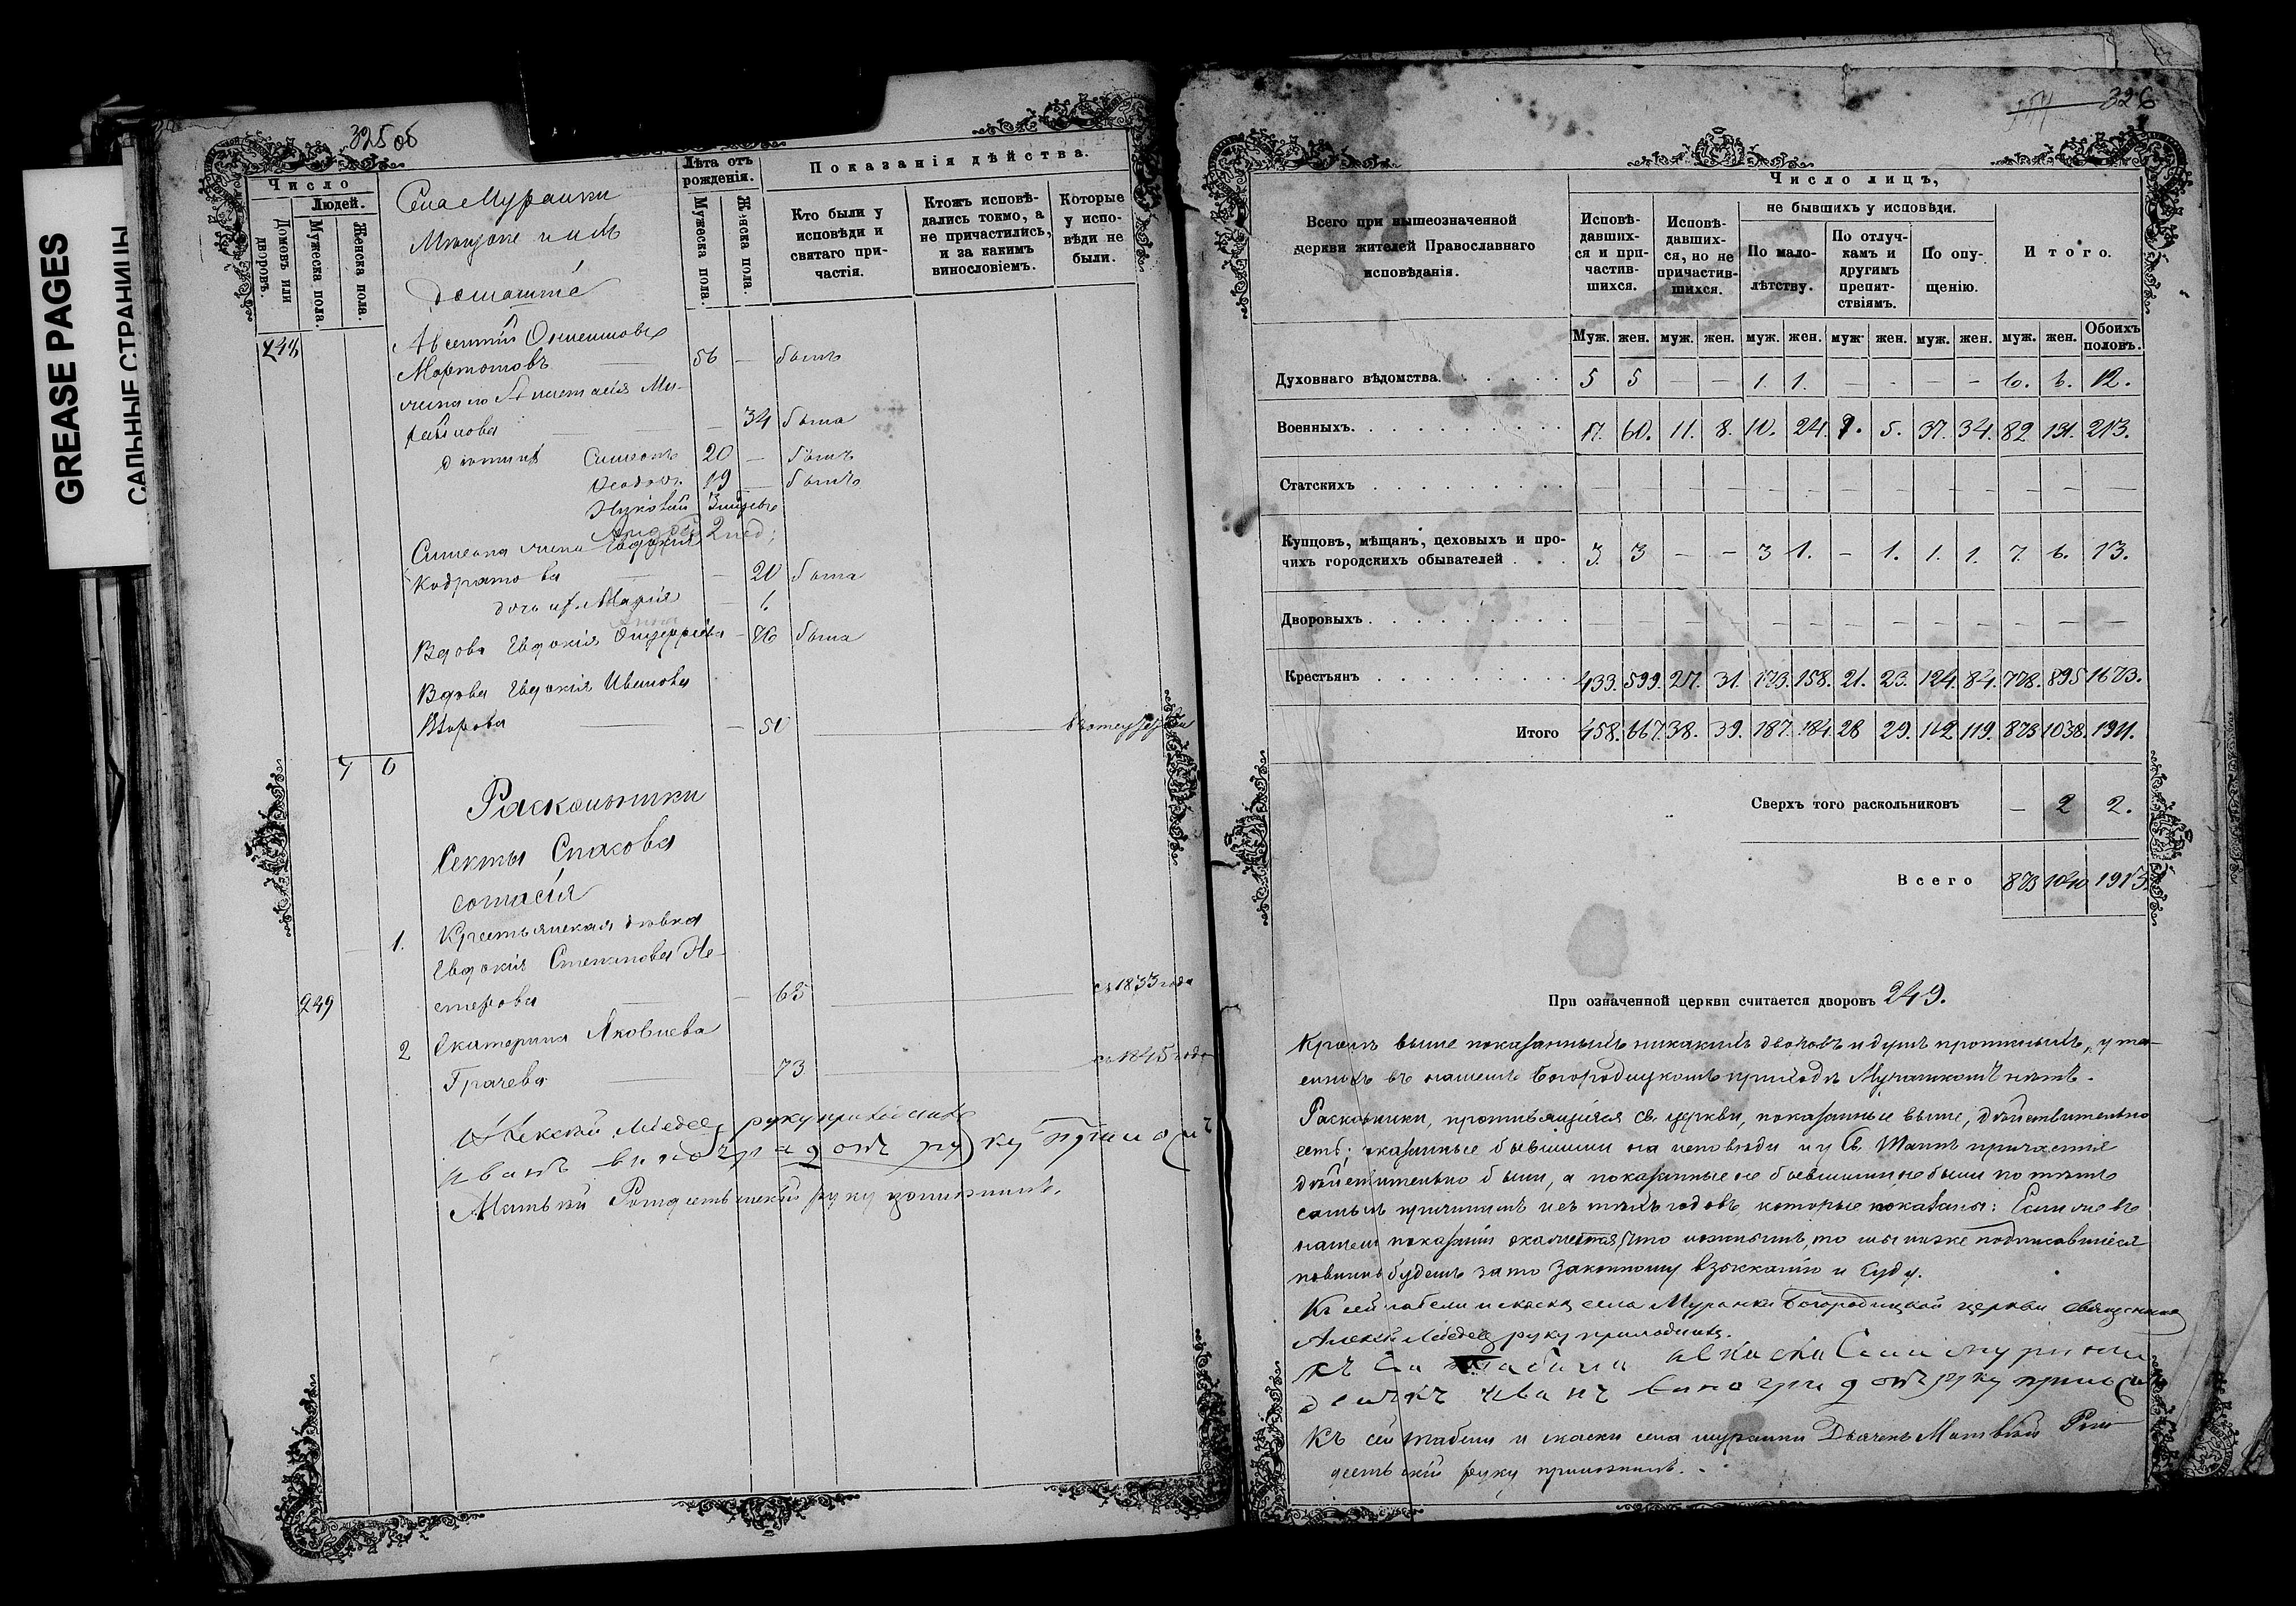 GREASE PAGES
САЛЬНЫЕ СТРАНИЦЫ
325 об
Число
Людей.
Домовъ или дворовъ.
Мужеска пола.
Женска пола.
Лѣта отъ рожденія.
Мужеска пола.
Женска пола.
Показанія дѣйства.
Кто были у исповѣди и святаго причастія.
Ктожъ исповѣдались токмо, а не причастились, и за какимъ винословіемъ.
Которые у исповѣди не были.
Села Муранки
Мѣщане и ихъ
домашніе
248
Авксентій
Мартыновъ — 56 — былъ
жена его Анастасія Ми-
34 была
дѣти ихъ Симеонъ 20 — былъ
Ѳеодоръ 19 — былъ
Андрей 2 год;
Симеона жена Евдокія
Кодратова — 20 была
дочь их Марія — 1.
Анна
Вдова Евдокія — 86 была
Вдова Евдокія Иванова
— 50
7 6
Раскольники
Секты Спасова
согласія
1. Крестьянская дѣвка
Евдокія Степанова Не-
249 стерова — 65 съ 1833 года
2 Екатерина Яковлева
Грачева — 73 съ 1845 года
Алексѣй руку приложилъ
иванъ виноградовъ руку приложилъ
Матвѣй Рождественскій руку приложилъ.
326
Всего при вышеозначенной церкви жителей Православнаго исповѣданія.
Число лицъ,
Исповѣдавшихся и причастившихся.
Исповѣдавшихся, но не причастившихся.
не бывшихъ у исповѣди.
По малолѣтству.
По отлучкамъ и другимъ препятствіямъ.
По опущенію.
Итого.
Муж. жен. муж. жен. муж. жен. муж жен. муж. жен. муж. жен. Обоихъ половъ.
Духовнаго вѣдомства. 5 5 — — 1. 1. — - — — 6. 6. 12.
Военныхъ. 17. 60. 11. 8. 10. 24. 7. 5. 37. 34. 82 131. 213.
Статскихъ — — — — — — — — — — — — —
Купцовъ, мѣщанъ, цеховыхъ и прочихъ городскихъ обывателей 3. 3 — — 3 1. — 1. 1. 1. 7. 6. 13.
Дворовыхъ — — — — — — — — — — — — —
Крестьянъ 433. 599. 27. 31. 173. 158. 21. 23. 124. 84. 778. 895 1673.
Итого 458. 667. 38. 39. 187. 184. 28 29. 162. 119. 873 1038. 1911.
Сверхъ того раскольниковъ — 2 2.
Всего 873 1040 1913
При означенной церкви считается дворовъ 249.
Кромѣ выше показанныхъ никакихъ дворовъ и душъ прописныхъ, ута-
енныхъ въ нашемъ Богородицкомъ приходѣ Муранкомъ нѣтъ.
Раскольники, противящіяся св. церкви, показанные выше, дѣйствительно
есть; показанные бывшими на исповѣди и у Св. Таинъ причастія
дѣйствительно были, а показанные не бывшими не были по тѣмъ
самымъ причинамъ и съ тѣхъ годовъ, которые показаны: Если же въ
нашемъ показаніи окажется что ложнымъ, то мы ниже подписавшіеся
повинны будемъ за то законному взысканію и суду.
Къ сей табели и сказкѣ села Муранки Богородицкой церкви священникъ
Алексѣй руку приложилъ.
къ сей табели и сказки Села муранки
дьячкъ иванъ виноградовъ руку приложилъ
Къ сей табели и сказки села муранки Дьячекъ Матвѣй Рож-
дественскій руку приложилъ.